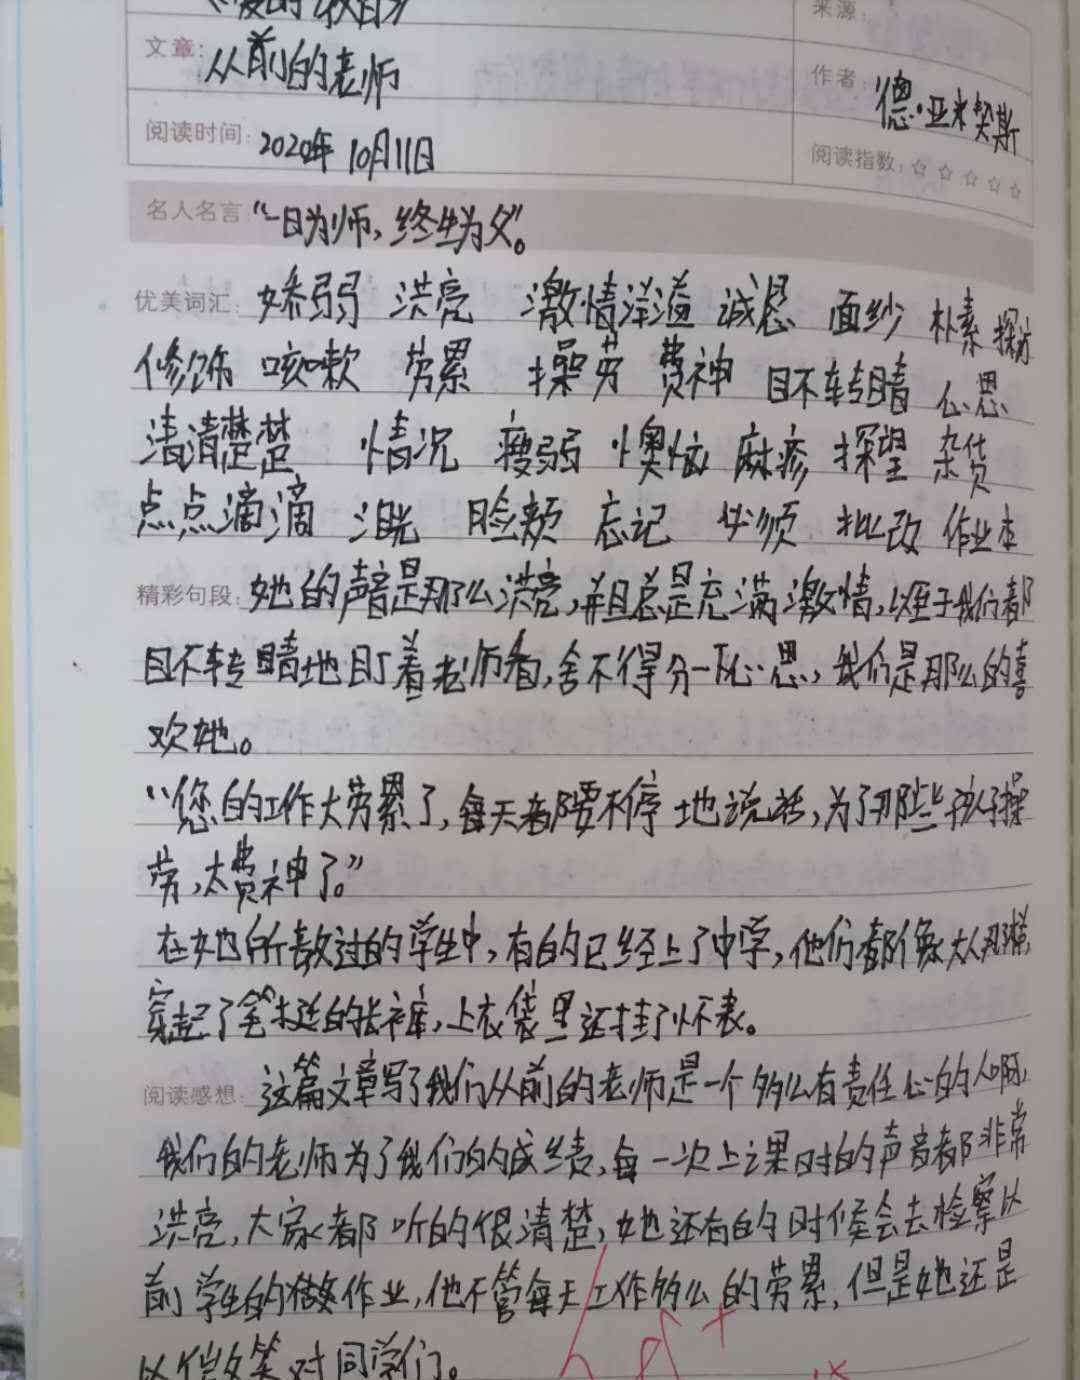 《爱的教育》
来源:
文章: 从前的老师
作者: 德·亚米契斯
阅读时间: 2020年10月11日
阅读指数: ☆☆☆☆☆
名人名言 “一日为师,终生为父”。
优美词汇: 娇弱 洪亮 激情洋溢 诚恳 面纱 朴素 探访
修饰 咳嗽 劳累 操劳 费神 目不转睛 心思
清清楚楚 情况 瘦弱 懊恼 麻疹 探望 杂货
点点滴滴 泪光 脸颊 忘记 必须 批改 作业本
精彩句段: 她的声音是那么洪亮,并且总是充满激情,以至于我们都
目不转睛地盯着老师看,舍不得分一下心思,我们是那么的喜
欢她。
“您的工作太劳累了,每天都要不停地说话,为了那些孩子操
劳,太费神了。”
在她所教过的学生中,有的已经上了中学,他们都像大人那样,
穿起了笔挺的长裤,上衣袋里还挂了怀表。
阅读感想: 这篇文章写了我们从前的老师是一个多么有责任心的人啊,
我们的老师为了我们的成绩,每一次上课时的声音都非常
洪亮,大家都听的很清楚,她还有的时候会去检察以
前学生的做作业,他不管每天工作多么的劳累,但是她还是
以微笑对同学们。